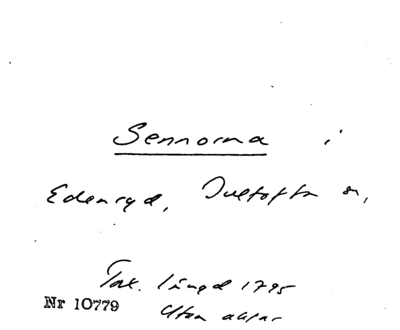 Sennorna i
Edenryd, Ivetofta sn,
Tax. längd 1795
Nr 10779 Utan aktnr